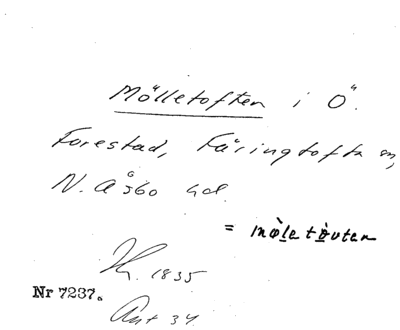 Mölletoften i Ö.
Forestad, Färingtofta sn,
N. Åsbo hd.
= mø̀le tò̤uten
1835
Nr 7237.
Ant 34